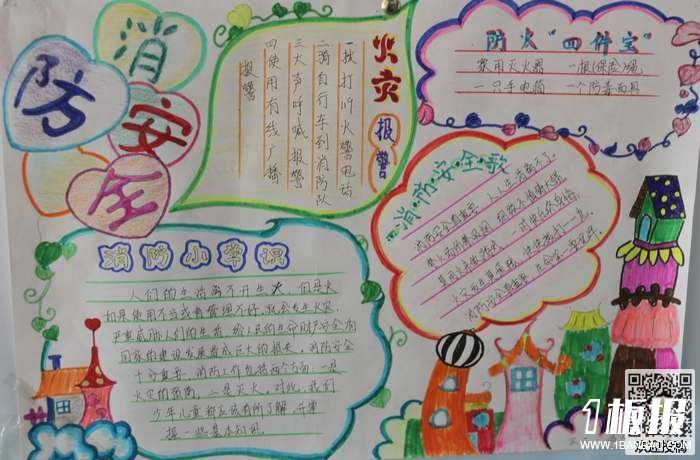 消
防
安
全
火灾报警
一拨打119火警电话
二骑自行车到消防队
三大声呼喊报警
四使用有线广播
报警
防火“四件宝”
家用灭火器 一根保险绳
一只手电筒 一个防毒面具
消·防·安·全·歌
消防小常识
人们的生活离不开生火,但是火
如果使用不当或者管理不好,就会发生火灾,
严重威胁人们的生活,给人民的生命财产安全和
国家的建设发展造成巨大的损失。消防安全
十分重要。消防工作包括两个方面:一是
火灾的预防,二是灭火。对此,我们
少年儿童都应该有所了解,并掌
握一些基本知识
1板报
WWW.1BANBAO.COM
欢迎投稿